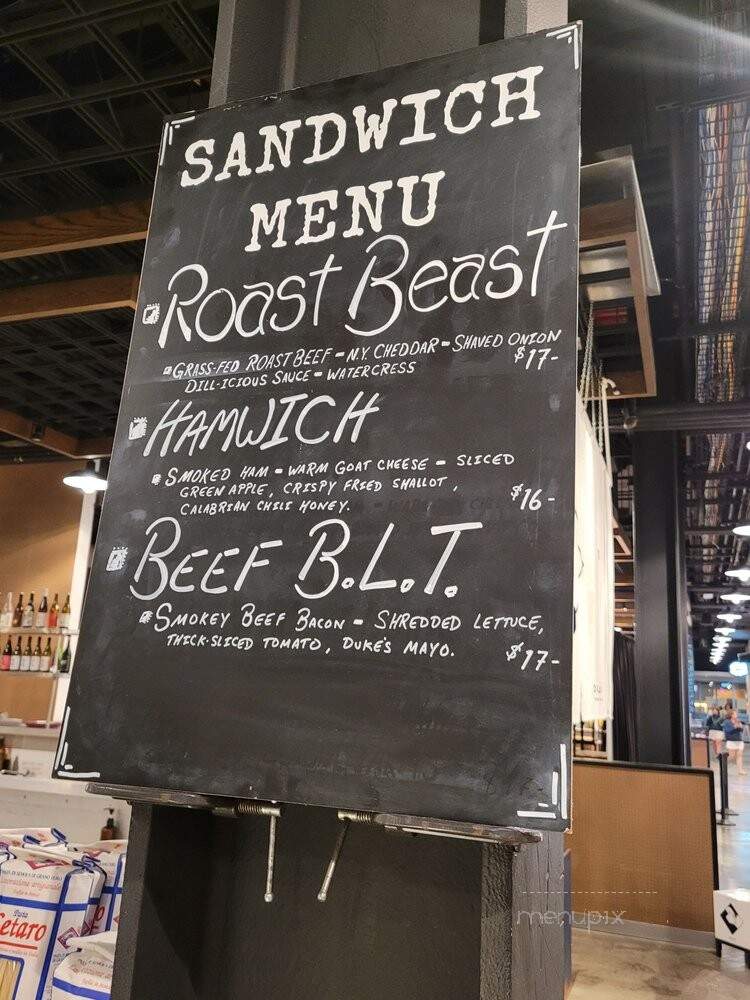 SANDWICH
MENU
ROAST BEAST
GRASS-FED ROAST BEEF - N.Y. CHEDDAR - SHAVED ONION
DILL-ICIOUS SAUCE - WATERCRESS
$17-
HAMWICH
SMOKED HAM - WARM GOAT CHEESE - SLICED
GREEN APPLE, CRISPY FRIED SHALLOT,
CALABRIAN CHILI HONEY.
$16-
BEEF B.L.T.
SMOKEY BEEF BACON - SHREDDED LETTUCE,
THICK-SLICED TOMATO, DUKE'S MAYO.
$17-
Pasta
Cetaro
menupix